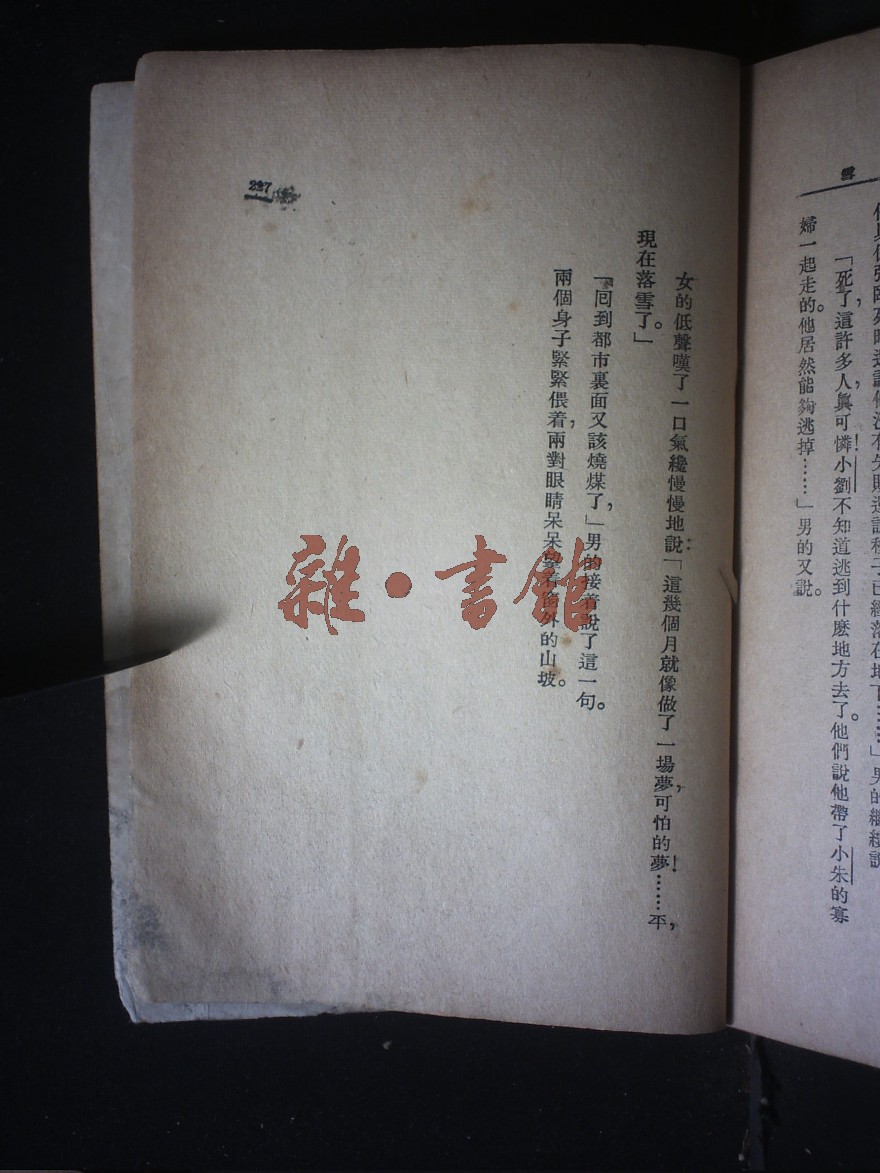 雪
「死了這許多人，眞可憐！小劉不知道逃到什麽地方去了。他們說他帶了小朱的寡
婦一起走的。他居然能夠逃掉……」男的又說。
女的低聲嘆了一口氣纔慢慢地說：「這幾個月就像做了一場夢，可怕的夢！……平，
現在落雪了。」
「回到都市裏面又該燒煤了，」男的接着說了這一句。
兩個身子緊緊偎着，兩對眼睛呆呆望着窗外的山坡。
227
雜·書館